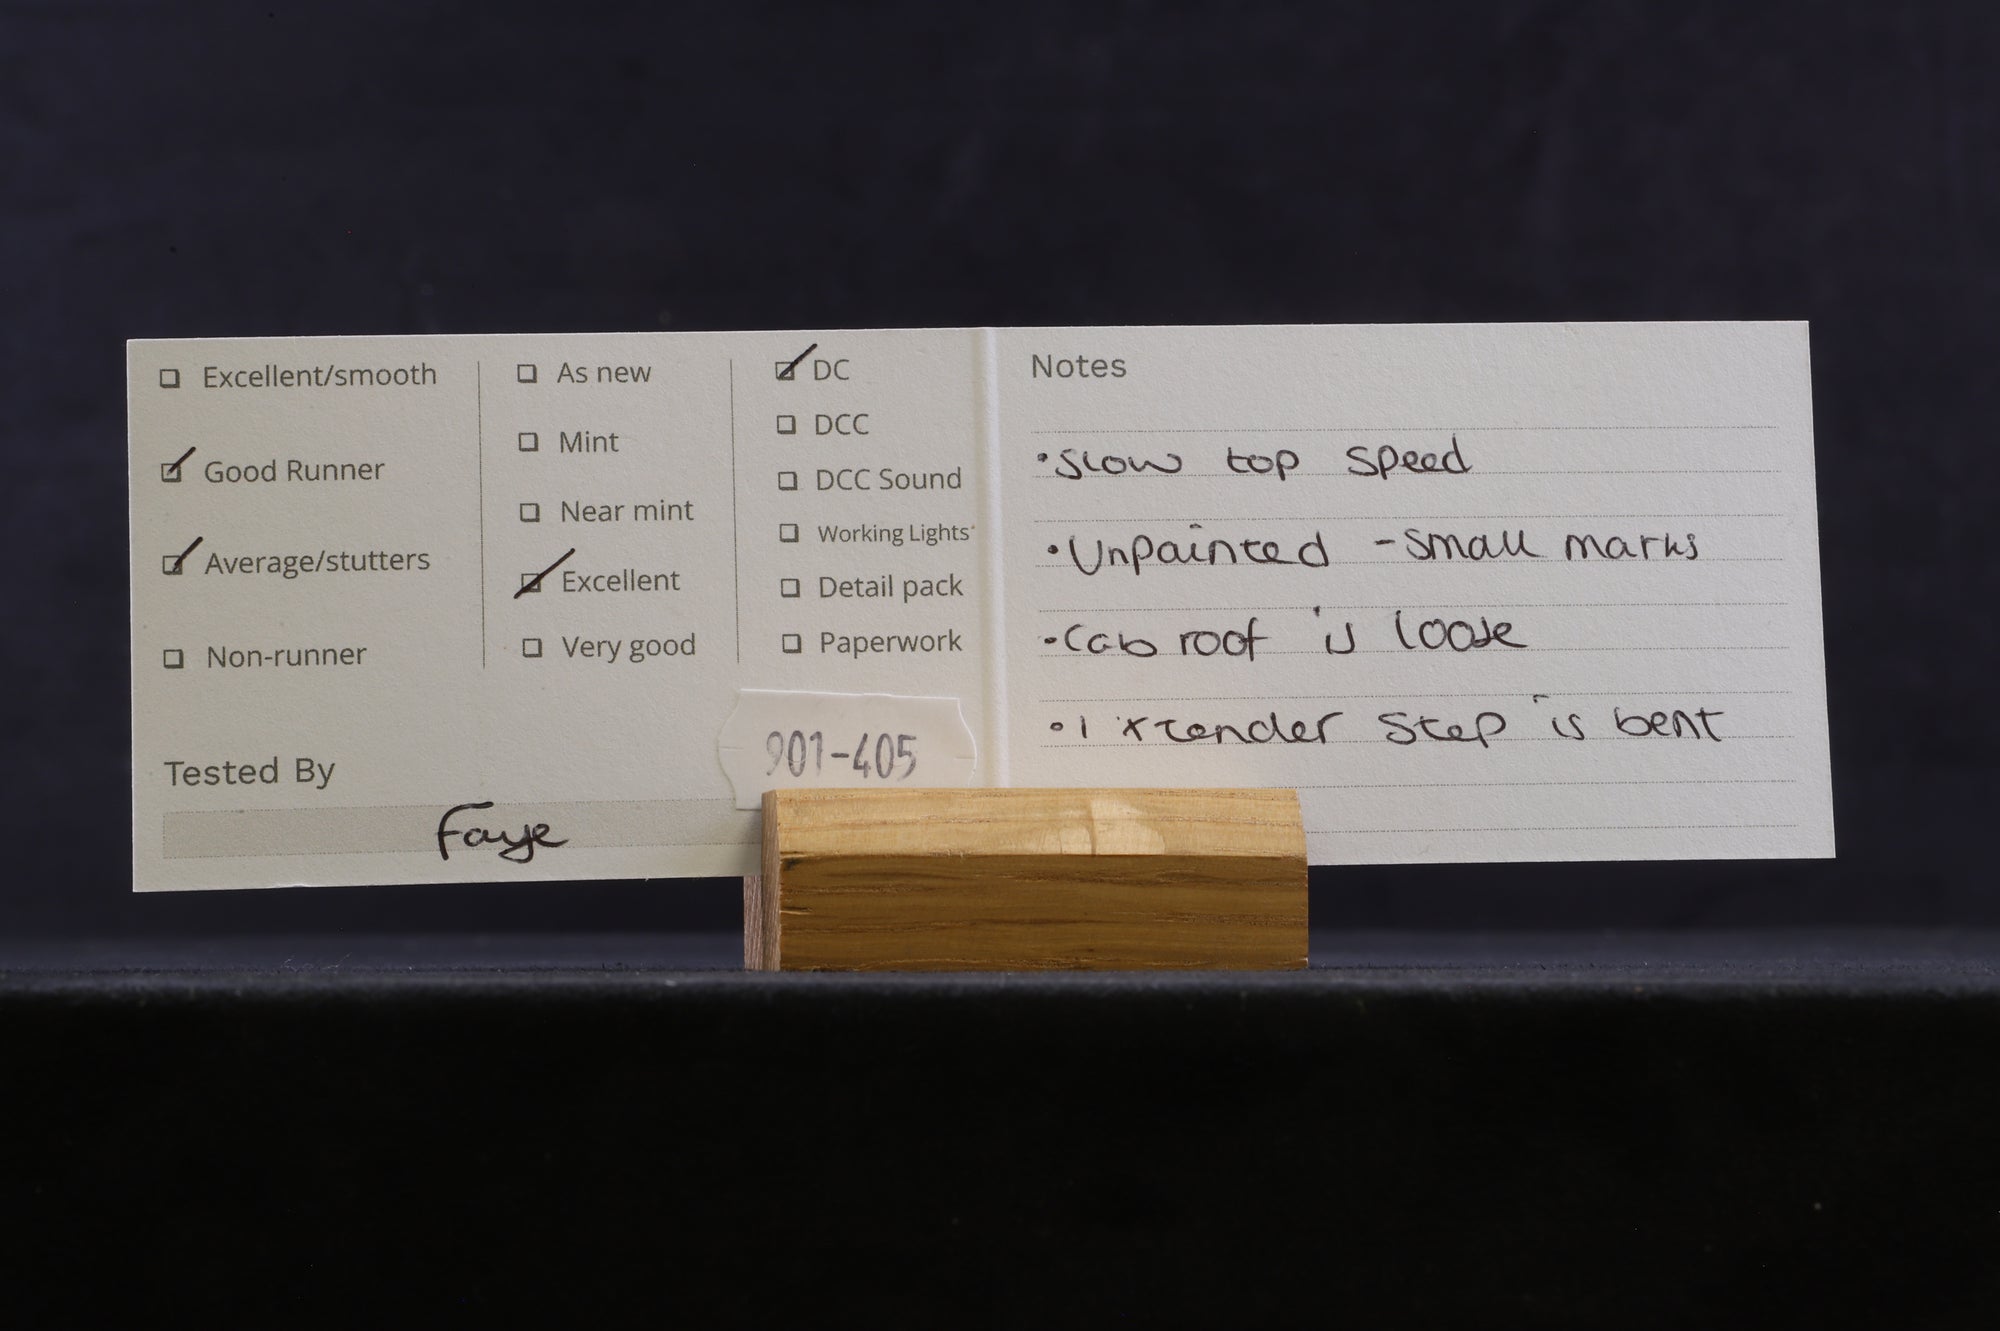 ☐ Excellent/smooth
☑ Good Runner
☑ Average/stutters
☐ Non-runner
☐ As new
☐ Mint
☐ Near mint
☑ Excellent
☐ Very good
☑ DC
☐ DCC
☐ DCC Sound
☐ Working Lights*
☐ Detail pack
☐ Paperwork
Tested By
Faye
901-405
Notes
• Slow top speed
• Unpainted - small marks
• Cab roof is loose
• 1 x tender step is bent